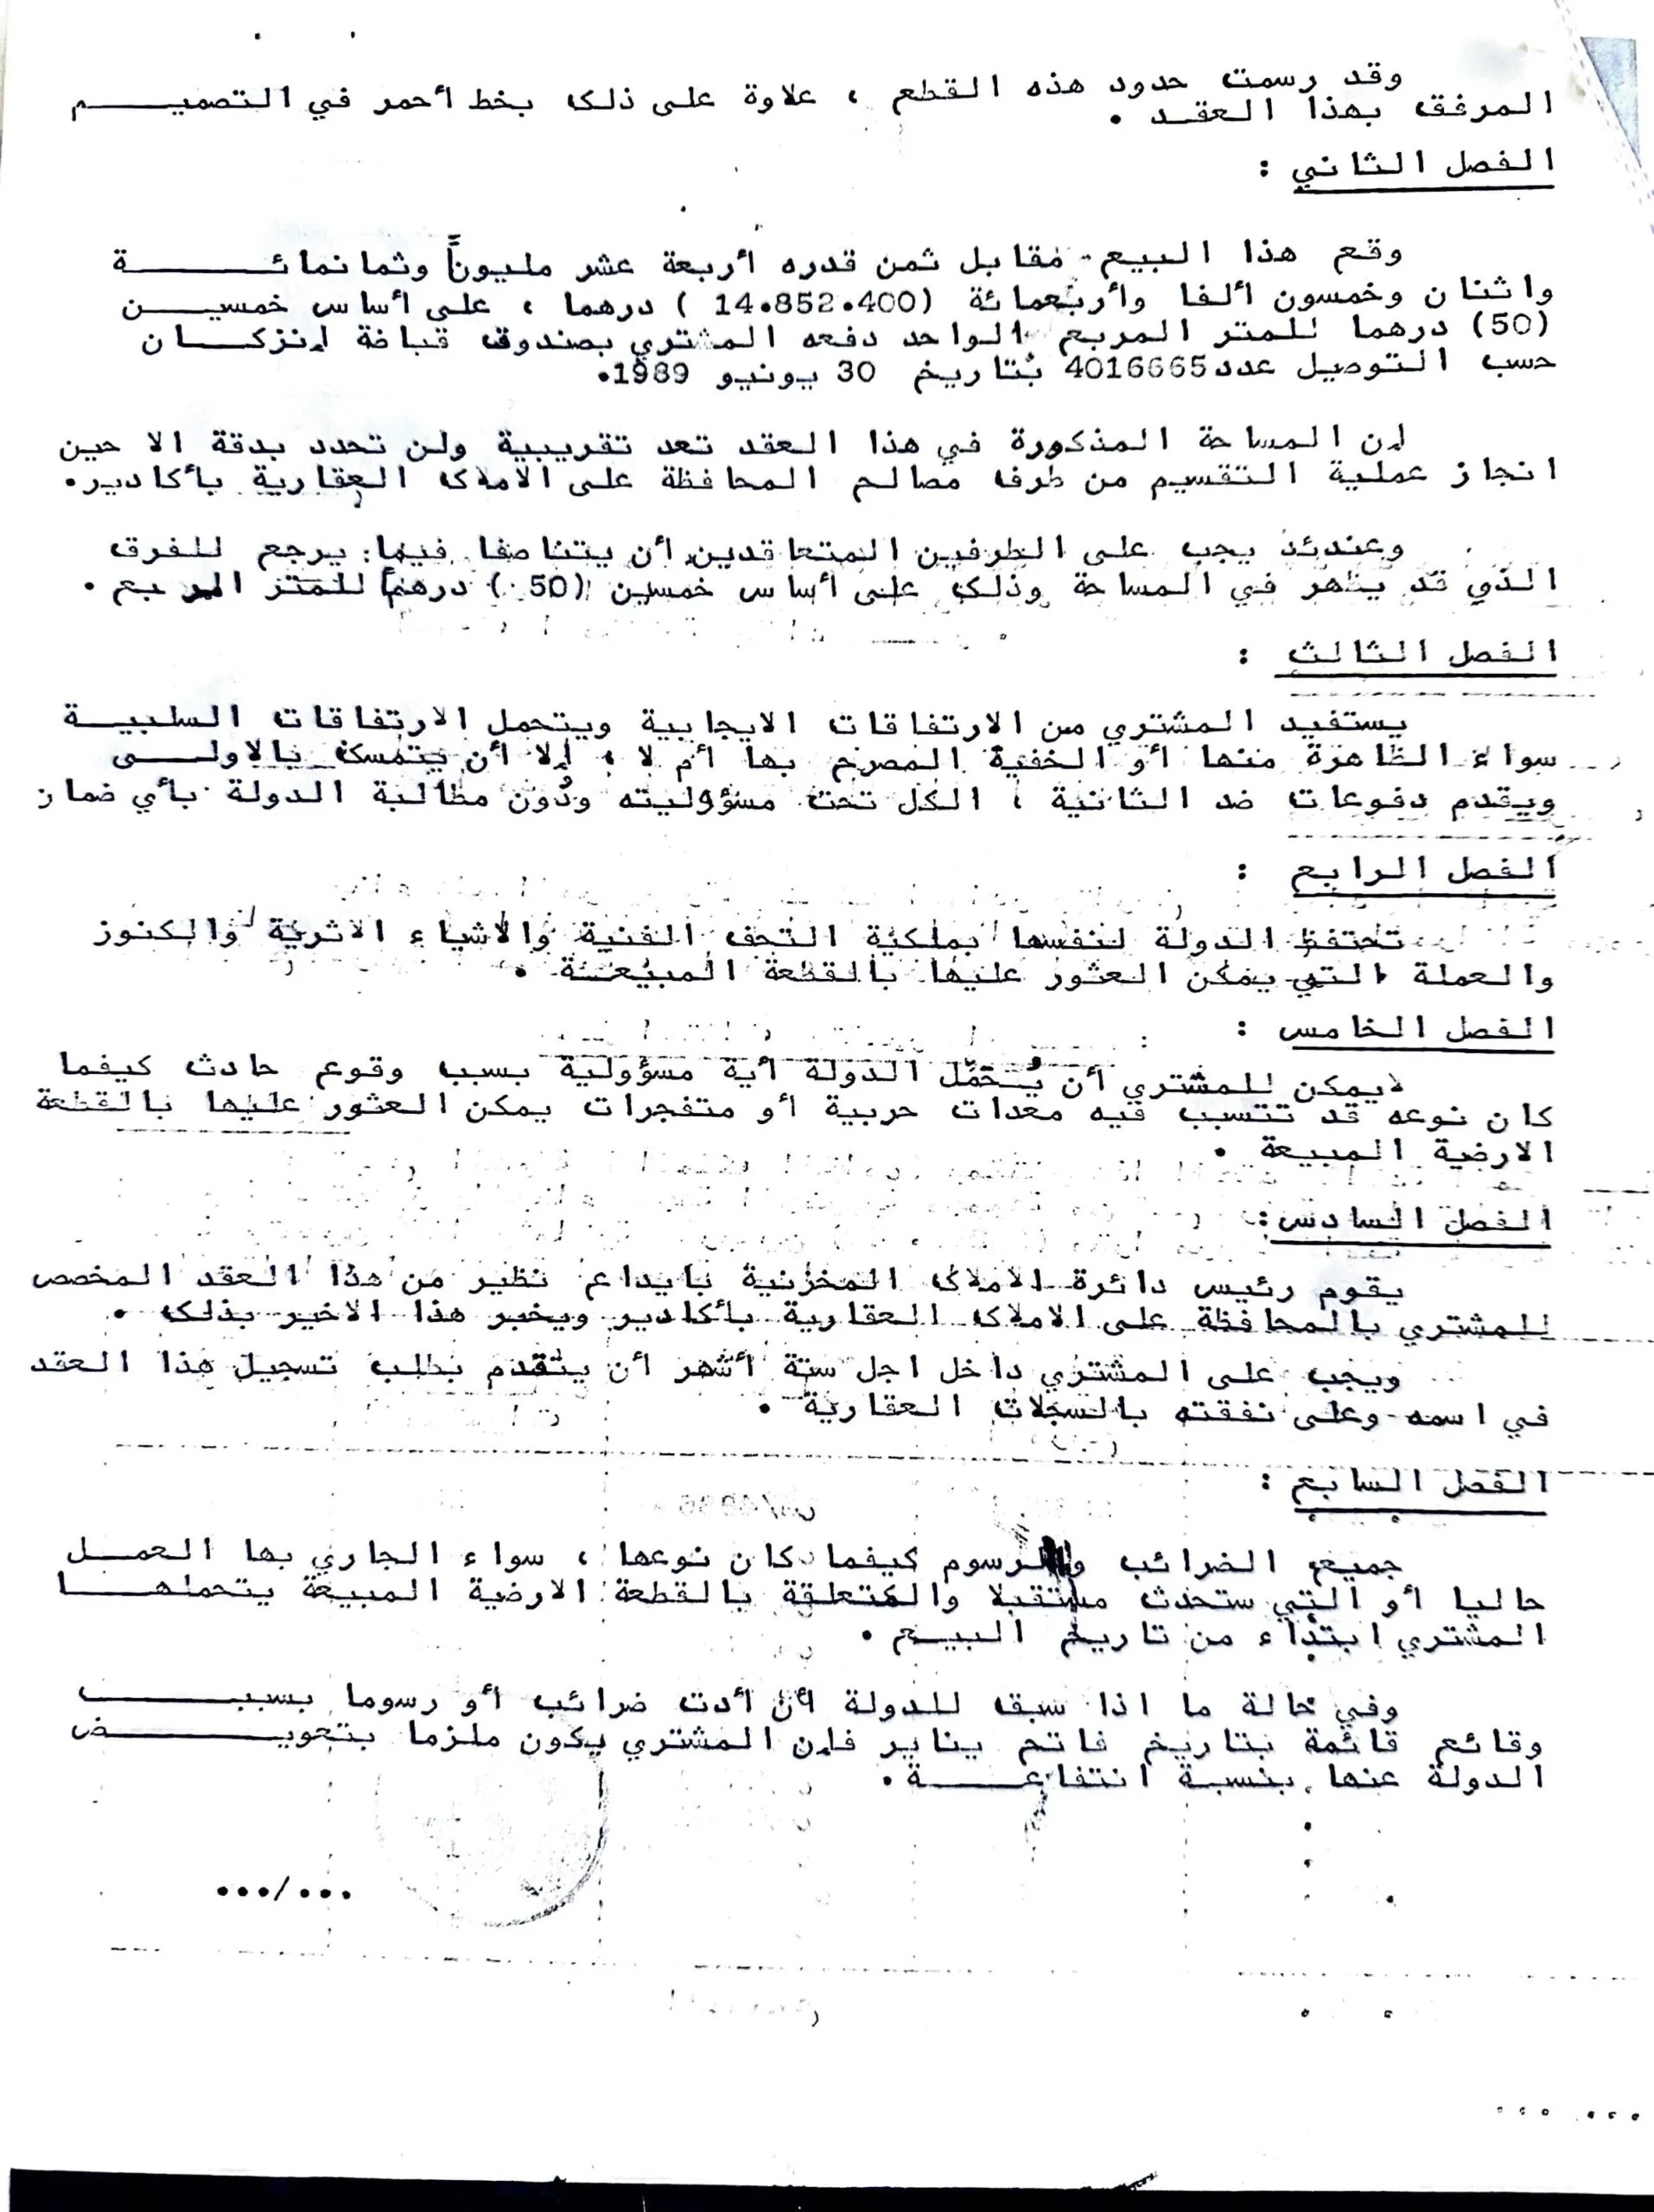 وقد رسمت حدود هذه القطع ، علاوة على ذلك بخط أحمر في التصميم
المرفق بهذا العقد .
الفصل الثاني :
وقع هذا البيع مقابل ثمن قدره أربعة عشر مليوناً وثمانمائة
واثنان وخمسون ألفا وأربعمائة (14.852.400 ) درهما ، على أساس خمسين
(50) درهما للمتر المربع الواحد دفعه المشتري بصندوق قباضة إنزكان
حسب التوصيل عدد 4016665 بتاريخ 30 يونيو 1989.
إن المساحة المذكورة في هذا العقد تعد تقريبية ولن تحدد بدقة الا حين
انجاز عملية التقسيم من طرف مصالح المحافظة على الأملاك العقارية بأكادير.
وعندئذ يجب على الطرفين المتعاقدين أن يتناصفا فيما يرجع للفرق
الذي قد يظهر في المساحة وذلك على أساس خمسين (50) درهماً للمتر المربع .
الفصل الثالث :
يستفيد المشتري من الارتفاقات الايجابية ويتحمل الارتفاقات السلبية
سواء الظاهرة منها أو الخفية المصرح بها أم لا ، إلا أن يتمسك بالاولى
ويقدم دفوعات ضد الثانية ، الكل تحت مسؤوليته ودون مطالبة الدولة بأي ضمان
الفصل الرابع :
تحتفظ الدولة لنفسها بملكية التحف الفنية والأشياء الاثرية والكنوز
والعملة التي يمكن العثور عليها بالقطعة المبيعة .
الفصل الخامس :
لايمكن للمشتري أن يُحَمِّل الدولة أية مسؤولية بسبب وقوع حادث كيفما
كان نوعه قد تتسبب فيه معدات حربية أو متفجرات يمكن العثور عليها بالقطعة
الارضية المبيعة .
الفصل السادس:
يقوم رئيس دائرة الاملاك المخزنية بايداع نظير من هذا العقد المخصص
للمشتري بالمحافظة على الاملاك العقارية بأكادير ويخبر هذا الاخير بذلك .
ويجب على المشتري داخل اجل ستة أشهر أن يتقدم بطلب تسجيل هذا العقد
في اسمه وعلى نفقته بالسجلات العقارية .
الفصل السابع :
جميع الضرائب والرسوم كيفما كان نوعها ، سواء الجاري بها العمل
حاليا أو التي ستحدث مستقبلا والمتعلقة بالقطعة الارضية المبيعة يتحملها
المشتري ابتداء من تاريخ البيع .
وفي حالة ما اذا سبق للدولة أن أدت ضرائب أو رسوما بسبب
وقائع قائمة بتاريخ فاتح يناير فإن المشتري يكون ملزما بتعويض
الدولة عنها بنسبة انتفاعه .
.../...